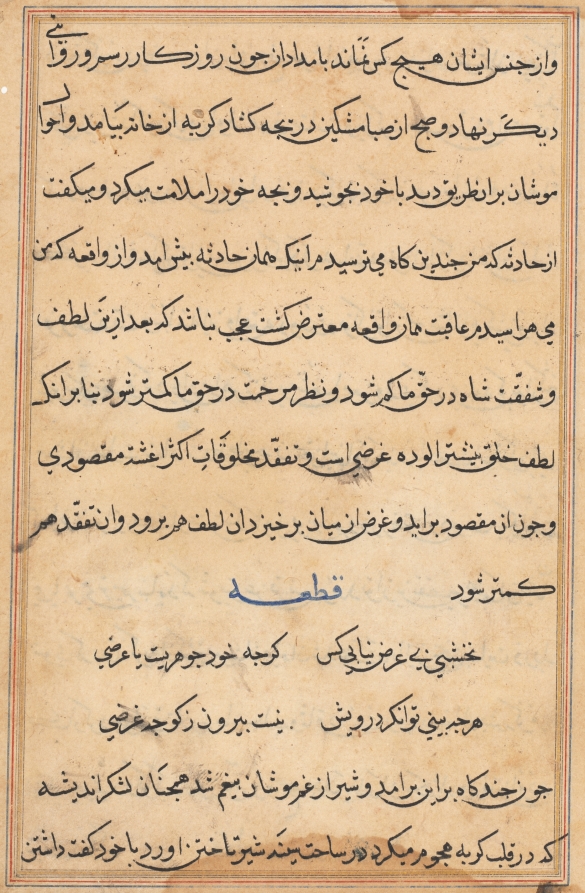 واز جنس ایشان هیچ کس نماند بامدادان جون روز کار رسرور
دیکر نهاد و صبح از صبا مشکین دریجه کشاد کربه از خانه بیامد واحوا
موشان بران طریق دید باخود بجوشید و بجه خود را ملامت میکرد و میکفت
از حادثه که من جندین کاه می ترسیدم اینک همان حادثه بیش امد واز واقعه که من
می هراسیدم عاقبت همان واقعه معترض کشت عجب نباشد که بعد ازین لطف
و شفقّت شاه در حقّ ما کم شود و نظر مرحمت در حق ما کمتر شود بنا برانک
لطف خلق بیشتر الوده غرضی است و تفقّد مخلوقات اکثر اغشتهٔ مقصودی
و جون ان مقصود براید و غرض از میان برخیزد ان لطف هم برود وان تفقّد هم
کمتر شود قطعه
نخشبی بی غرض نیابی کس کرجه خود جوهریست یا عرضی
هرجه بینی توانکر درویش نیست بیرون ز کوجه غرضی
جون جند کاه براین برامد و شیر از غم موشان بیغم شد همجنان لشکر اندیشه
که در قلب کربه هجوم میکرد در ساحت سینه شیر تاختن اورد باخود کفت داشتن